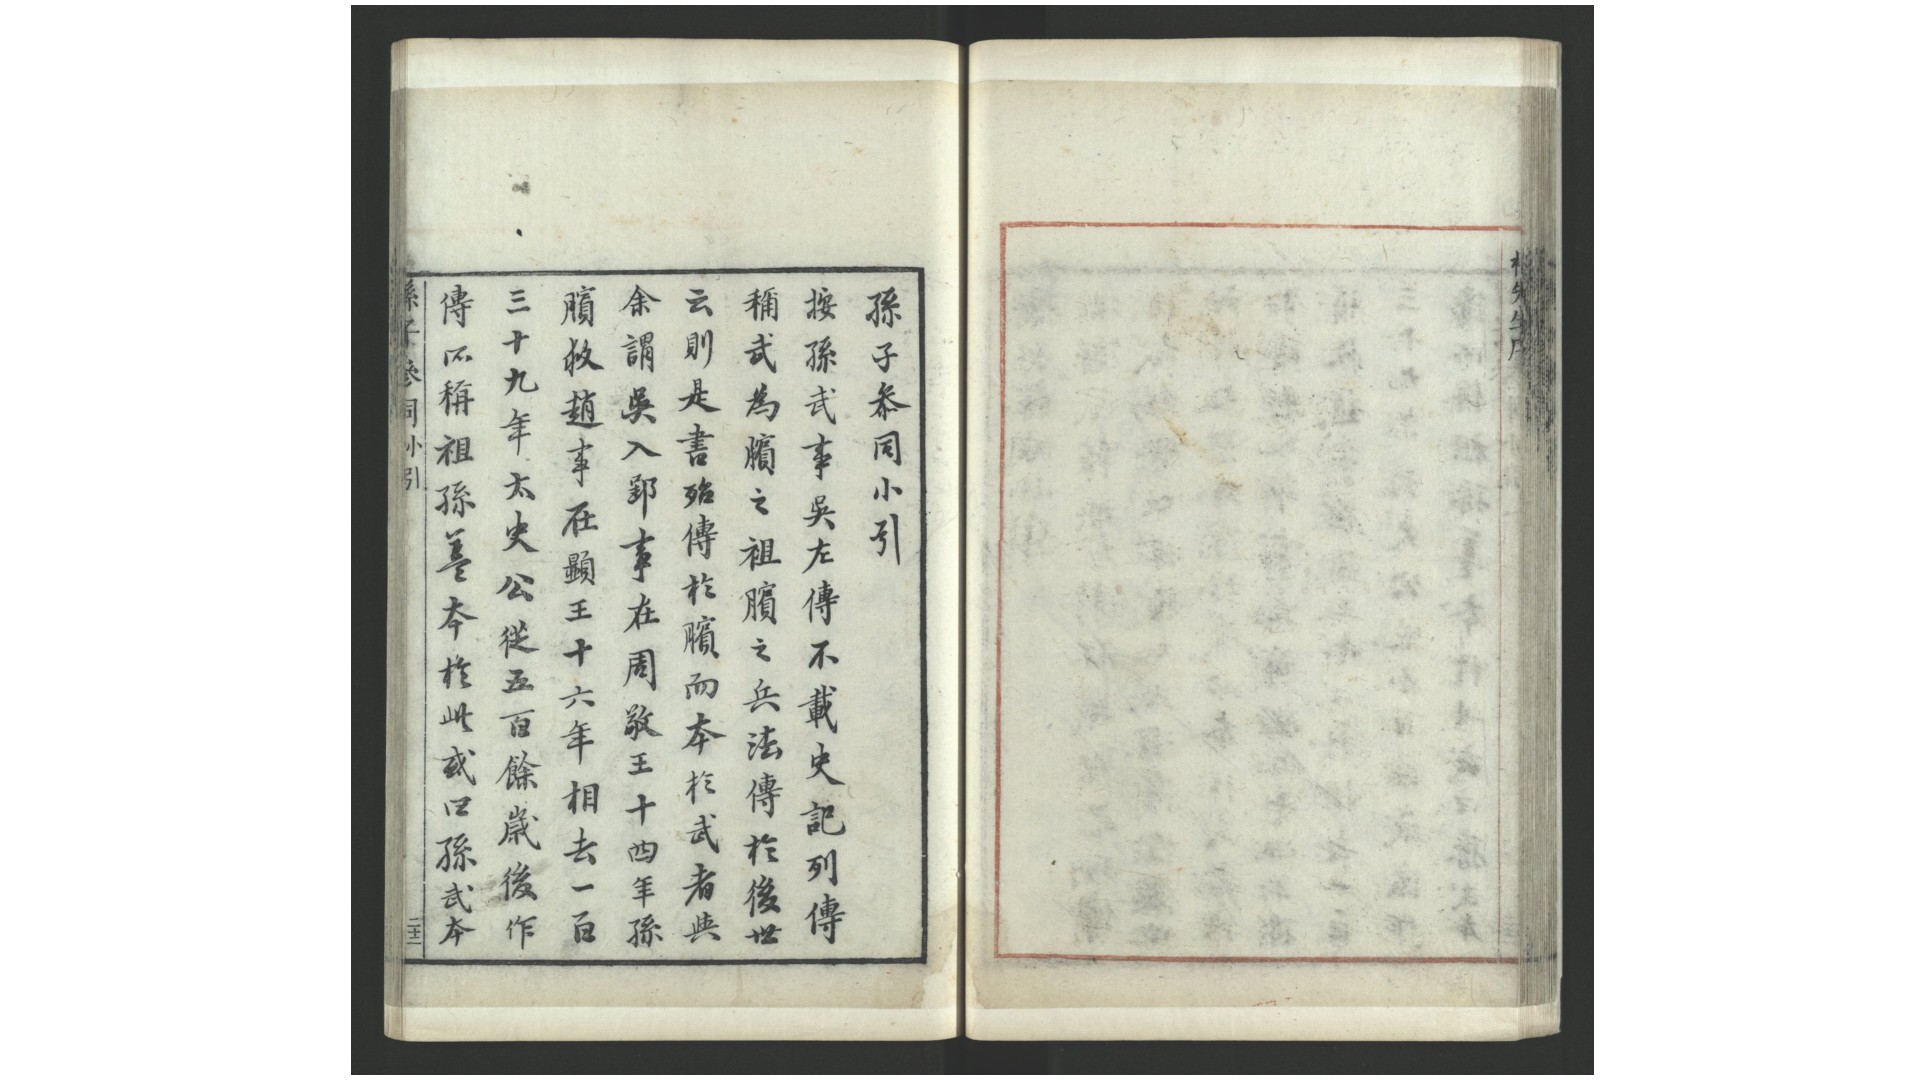 孫子叅同小引
按孫武事吳左傳不載史記列傳
稱武為臏之祖臏之兵法傳於後世
云則是書殆傳於臏而本於武者與
余謂吳入郢事在周敬王十四年孫
臏救趙事在顯王十六年相去一百
三十九年太史公從五百餘歲後作
傳所稱祖孫蓋本於此或曰孫武本
孫子參同小引
二十二